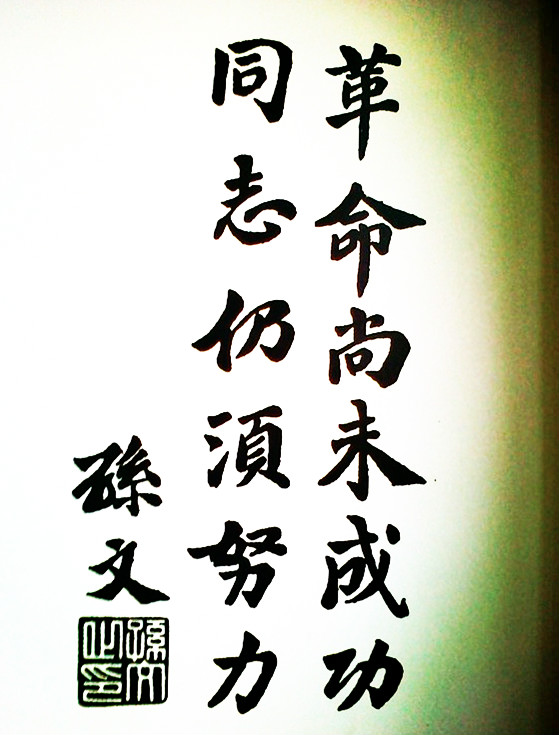 革命尚未成功
同志仍湏努力
孫文
孫文之印